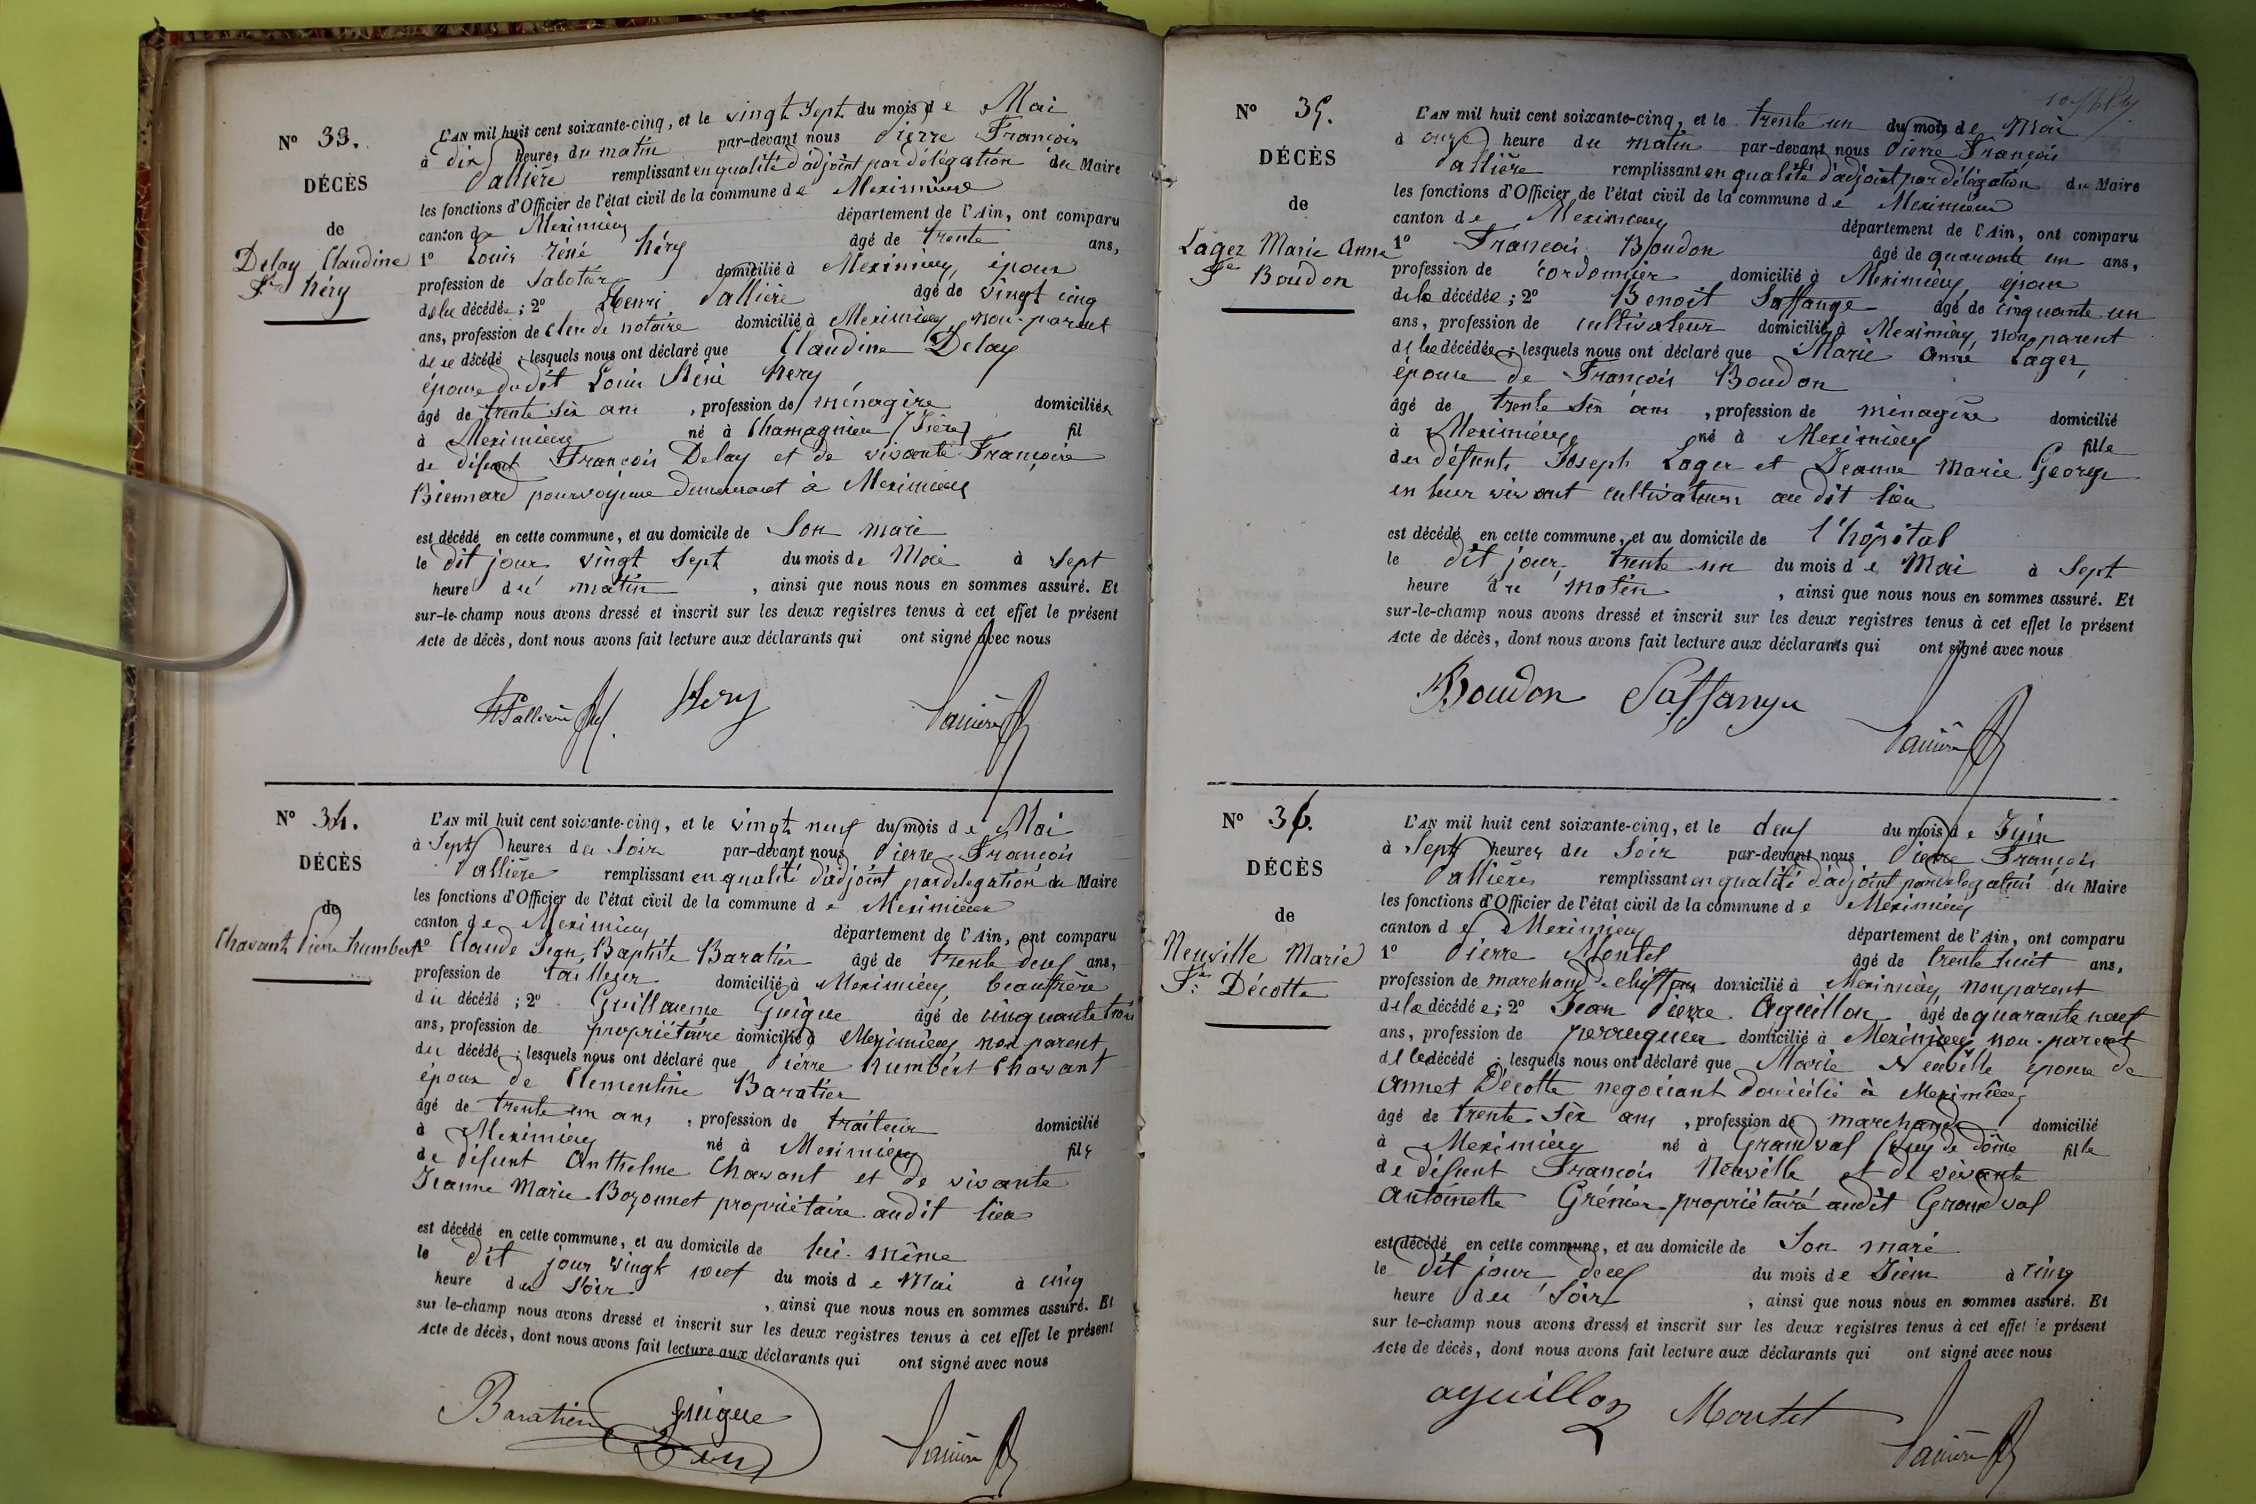 N° 33.
DÉCÈS
de
Delay Claudine
Fe Héry
L'AN mil huit cent soixante-cinq, et le vingt sept du mois de Mai
à dix heures du matin par-devant nous Pierre François
Pallière remplissant en qualité d'adjoint par délégation du Maire
les fonctions d'Officier de l'état civil de la commune de Meximieux
canton de Meximieux département de l'Ain, ont comparu
1° Louis Réné Héry âgé de trente ans,
profession de Sabotier domicilié à Meximieux, époux
de la décédée ; 2° Henri Pallière âgé de vingt cinq
ans, profession de clerc de notaire domicilié à Meximieux non-parent
de la décédé ; lesquels nous ont déclaré que Claudine Delay
épouse du dit Louis Réné Héry
âgé de trente six ans , profession de ménagère domiciliée
à Meximieux né à Chamagnieu (Isère) fil
de défunt François Delay et de vivante Françoise
Biennard pourvoyeuse demeurant à Meximieux
est décédé en cette commune, et au domicile de Son mari
le dit jour vingt sept du mois de Mai à Sept
heure du matin , ainsi que nous nous en sommes assuré. Et
sur-le-champ nous avons dressé et inscrit sur les deux registres tenus à cet effet le présent
Acte de décès, dont nous avons fait lecture aux déclarants qui ont signé avec nous
HPallière Héry Pallière
N° 34.
DÉCÈS
de
Chavant Pierre humbert
L'AN mil huit cent soixante-cinq, et le vingt neuf du mois de Mai
à Sept heures du Soir par-devant nous Pierre François
Pallière remplissant en qualité d'adjoint par délégation du Maire
les fonctions d'Officier de l'état civil de la commune de Meximieux
canton de Meximieux département de l'Ain, ont comparu
1° Claude Jean Baptiste Baratier âgé de trente deux ans,
profession de tailleur domicilié à Meximieux beaufrère
du décédé ; 2° Guillaume Guigue âgé de cinquante trois
ans, profession de propriétaire domicilié à Meximieux non parent
du décédé ; lesquels nous ont déclaré que Pierre humbert Chavant
époux de Clementine Baratier
âgé de trente un ans , profession de traiteur domicilié
à Meximieux né à Meximieux fils
de défunt Anthelme Chavant et de vivante
Jeanne Marie Bozonnet propriétaire audit lieu
est décédé en cette commune, et au domicile de lui-même
le dit jour vingt neuf du mois de Mai à cinq
heure du Soir , ainsi que nous nous en sommes assuré. Et
sur le-champ nous avons dressé et inscrit sur les deux registres tenus à cet effet le présent
Acte de décès, dont nous avons fait lecture aux déclarants qui ont signé avec nous
Baratier Guigue Pallière
N° 35.
DÉCÈS
de
Lager Marie Anne
Fe Boudon
L'AN mil huit cent soixante-cinq, et le trente un du mois de Mai
à onze heure du matin par-devant nous Pierre François
Pallière remplissant en qualité d'adjoint par délégation du Maire
les fonctions d'Officier de l'état civil de la commune de Meximieux
canton de Meximieux département de l'Ain, ont comparu
1° François Boudon âgé de quarante un ans,
profession de cordonnier domicilié à Meximieux, époux
de la décédée ; 2° Benoit Saffange âgé de cinquante un
ans, profession de cultivateur domicilié à Meximieux, non parent
de la décédée ; lesquels nous ont déclaré que Marie Anne Lager,
épouse de François Boudon
âgé de trente six ans , profession de ménagère domicilié
à Meximieux né à Meximieux fille
des défunts Joseph Lager et Jeanne Marie George
en leur vivant cultivateurs au dit lieu
est décédé en cette commune, et au domicile de l'hôpital
le dit jour trente un du mois de Mai à Sept
heure du matin , ainsi que nous nous en sommes assuré. Et
sur-le-champ nous avons dressé et inscrit sur les deux registres tenus à cet effet le présent
Acte de décès, dont nous avons fait lecture aux déclarants qui ont signé avec nous
Boudon Saffange Pallière
N° 36.
DÉCÈS
de
Neuville Marie
Fe Décotte
L'AN mil huit cent soixante-cinq, et le deux du mois de Juin
à Sept heures du Soir par-devant nous Pierre François
Pallière remplissant en qualité d'adjoint par délégation du Maire
les fonctions d'Officier de l'état civil de la commune de Meximieux
canton de Meximieux département de l'Ain, ont comparu
1° Pierre Montel âgé de trente huit ans,
profession de marchand de chiffons domicilié à Meximieux, non parent
de la décédée ; 2° Jean Pierre Aguillon âgé de quarante neuf
ans, profession de perruquier domicilié à Meximieux non-parent
de la décédé ; lesquels nous ont déclaré que Marie Neuville épouse de
Annet Décotte negociant domicilié à Meximieux
âgé de trente six ans , profession de marchande domicilié
à Meximieux né à Grandval (Puy de dôme fille
de défunt François Neuville et de vivante
Antoinette Grénier propriétaire audit Grandval
est décédé en cette commune, et au domicile de Son mari
le dit jour deux du mois de Juin à cinq
heure du Soir , ainsi que nous nous en sommes assuré. Et
sur le-champ nous avons dressé et inscrit sur les deux registres tenus à cet effet le présent
Acte de décès, dont nous avons fait lecture aux déclarants qui ont signé avec nous
aguillon Montel Pallière